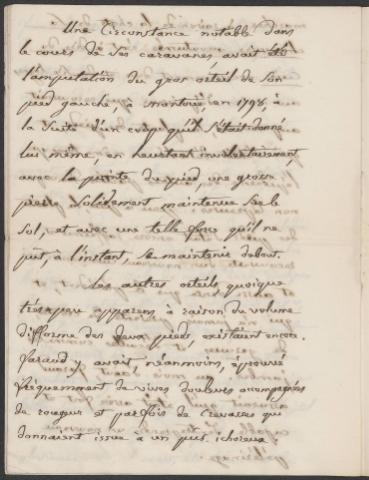 Une Circonstance notable dans
le cours de ses caravanes avait été
l'amputation du gros orteil de son
pied gauche, à en 1798, à
la suite d'un coup qu'il s'était donné
lui même, en heurtant involontairement
avec la pointe du pied, une grosse
pierre solidement maintenue sur le
sol, et avec une telle force qu'il ne
put, à l'instant, se maintenir debout.
Les autres orteils quoique
très peu apparens, à raison du volume
difforme des deux pieds, existaient encore.
y avait néanmoins, éprouvé
fréquemment de vives douleurs accompagnées
de rougeur et parfois de crevasses qui
donnaient issue à un pus ichoreux.